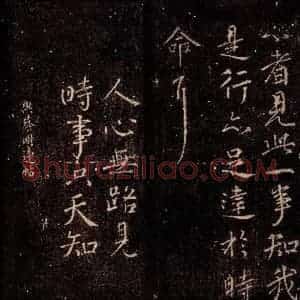 心者見此一事知我
是行亦是達於時
命耳
人心無路見
時事只天知
Shufaziliao.com